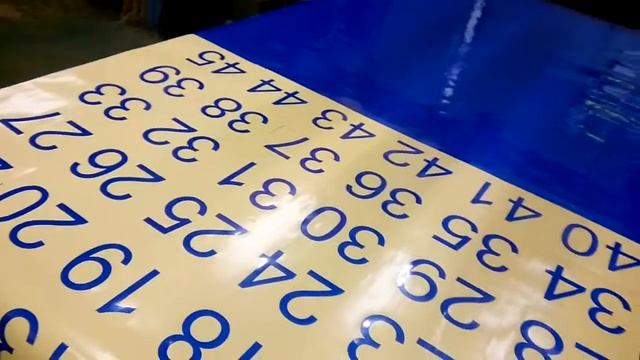 3
18 19 20
3 24 25 26 27
28 29 30 31 32 33
34 35 36 37 38 39
40 41 42 43 44 45